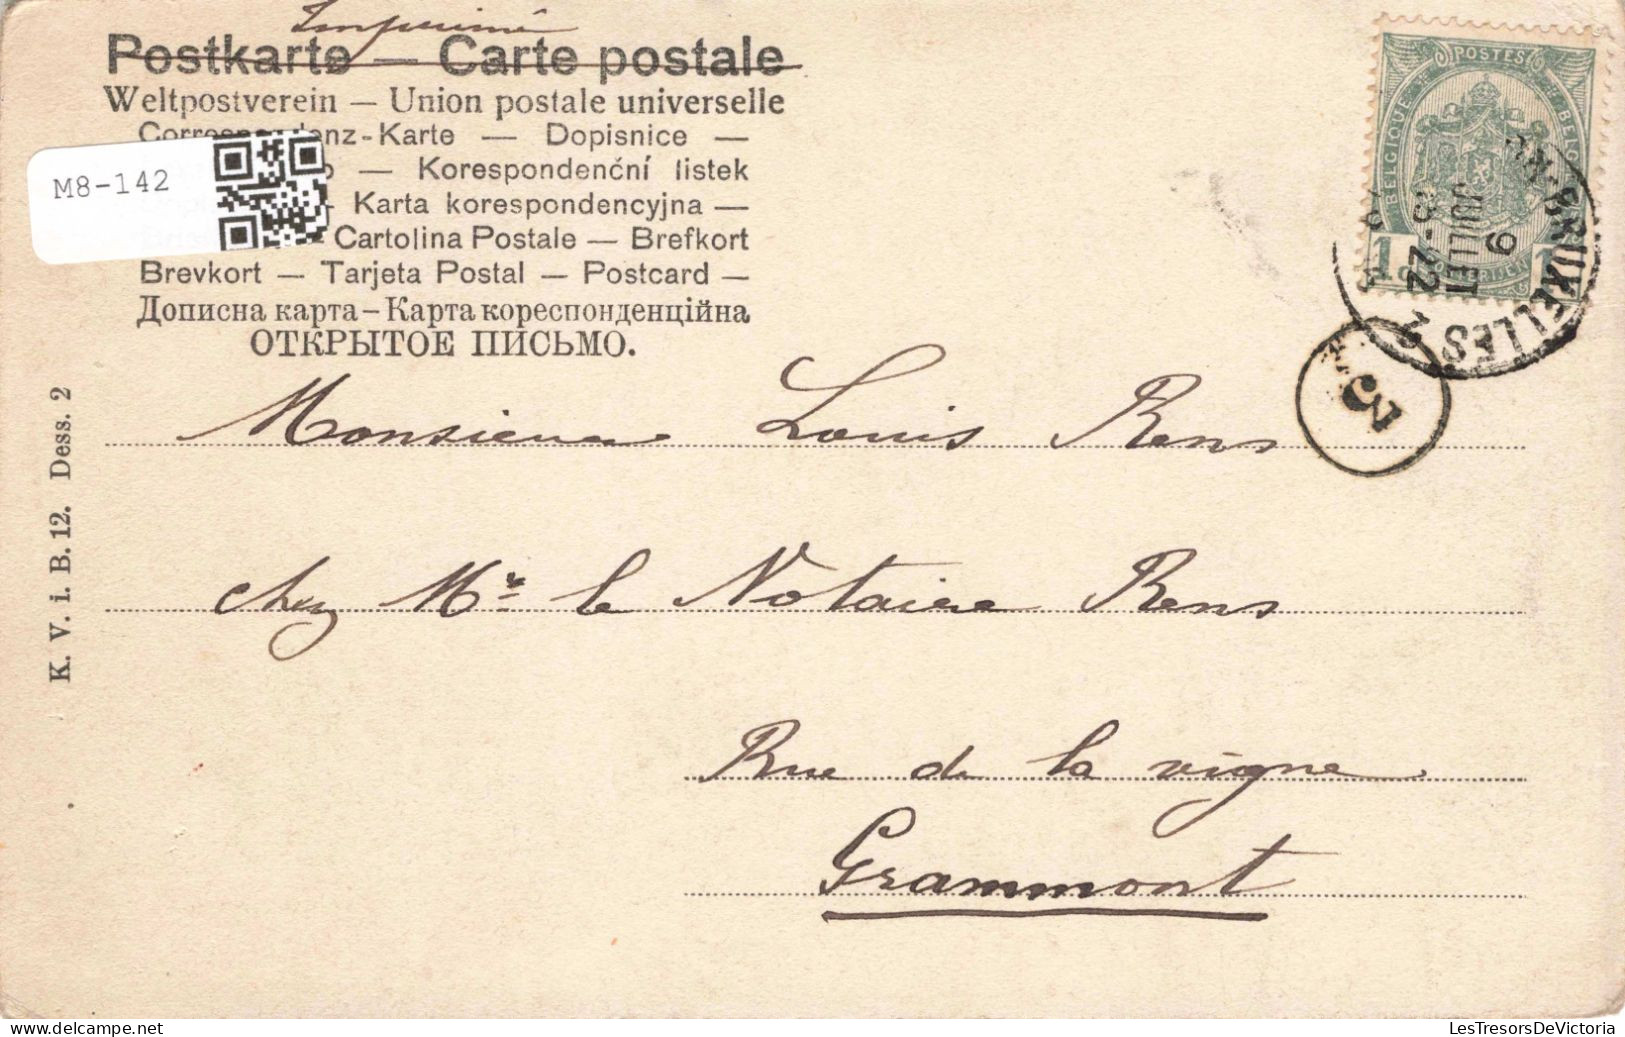 Imprimé
Postkarte — Carte postale
Weltpostverein — Union postale universelle
-Karte — Dopisnice —
— Korespondenční listek
Karta korespondencyjna —
Cartolina Postale — Brefkort
Brevkort — Tarjeta Postal — Postcard —
Дописна карта – Карта кореспонденційна
ОТКРЫТОЕ ПИСЬМО.
M8-142
K. V. i. B. 12. Dess. 2
POSTES
BELGIQUE
1
BRUXELLES
9
JUILLET
22
5
Monsieur Louis Rens
chez Mr le Notaire Rens
Rue de la vigne
Grammont
LesTresorsDeVictoria
https://www.delcampe.net/en_US/collectibles/store/lestresorsdevictoria